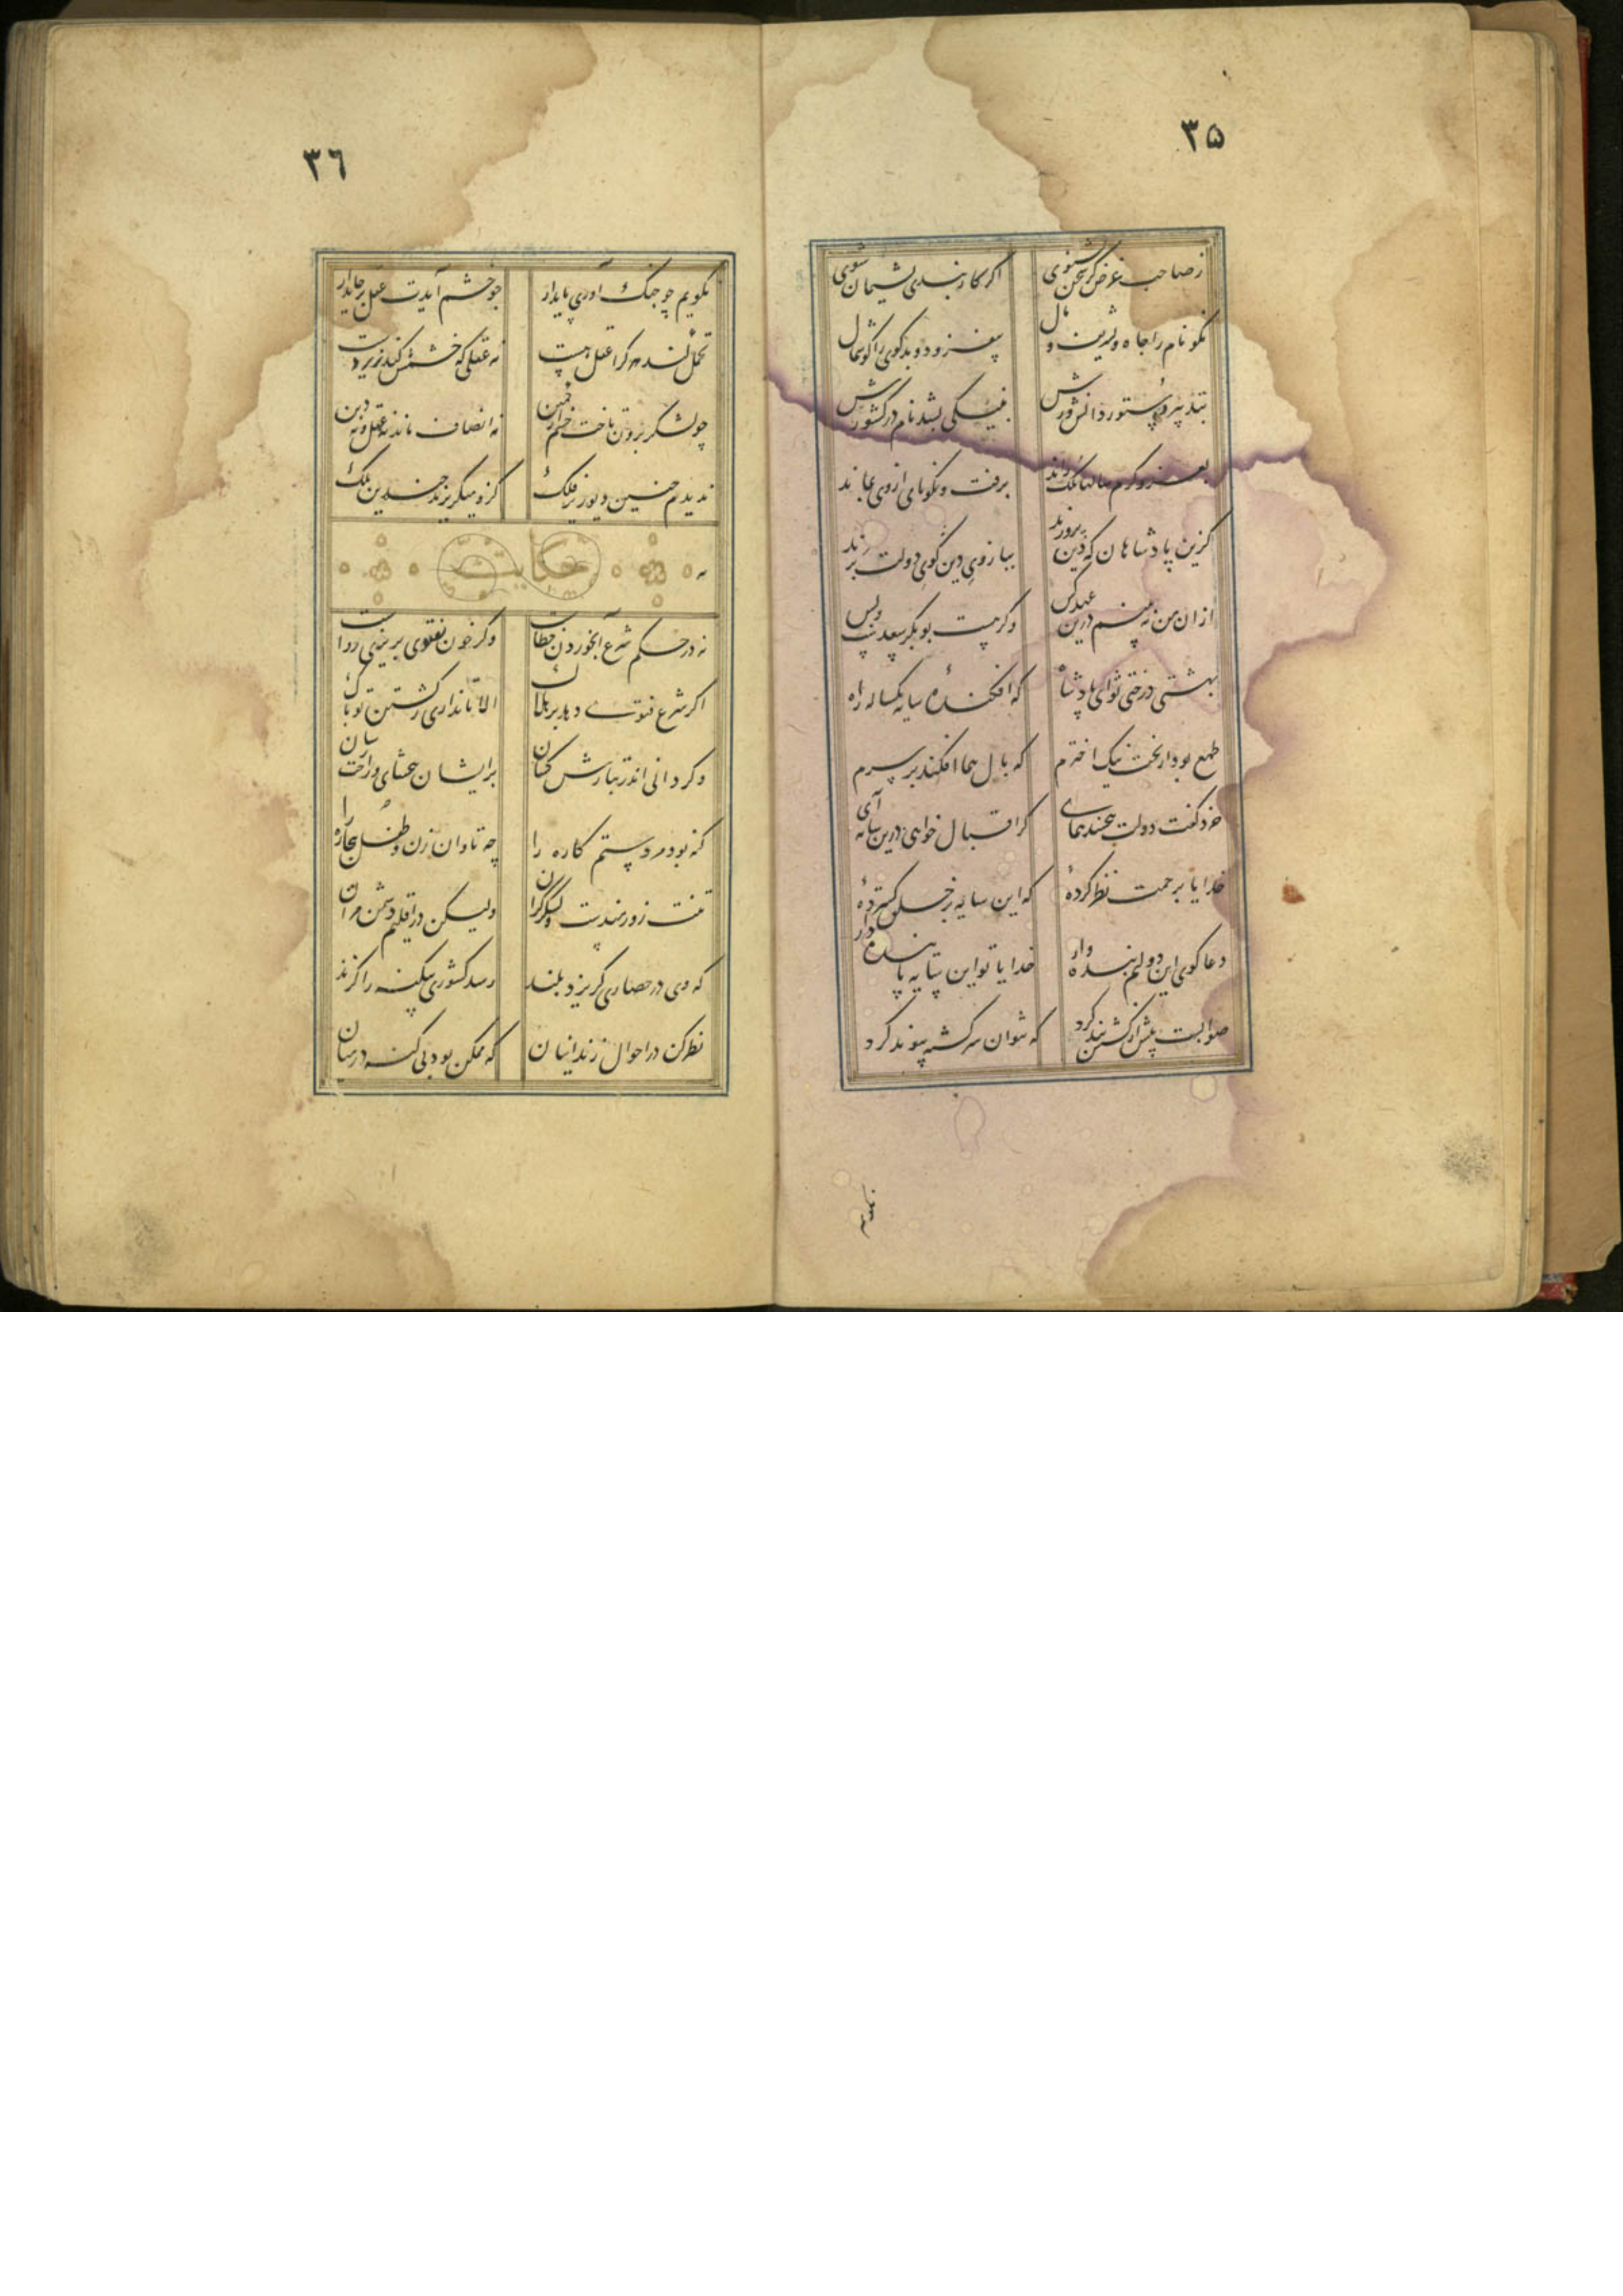 ۳۵
ز صاحب غرض گر سخن بشنوی اگر کار بندی پشیمان شوی
نکو نام را جاه و تشریف و مال بیفزود و بدگوی را گوشمال
بتدبیر دستور دانش ورش بنیکی بشد نام در کشورش
بعدل و کرم سالها ملک راند برفت و نکونامی ازوی بماند
گزین پادشاهان که دین پرورند ببازوی دین گوی دولت برند
از آن من نه بینم درین عهد کس وگر هست بوبکر سعدست و بس
بهشتی درختی تو ای پادشاه که افکندهٔ سایه یکساله راه
طمع بود از بخت نیک اخترم که بال هما افکند بر سرم
خرد گفت دولت نبخشد همای گر اقبال خواهی درین سایه آی
خدایا برحمت نظر کردهٔ که این سایه بر خلق گستردهٔ
دعا گوی این دولتم بنده وار خدایا تو این سایه پاینده دار
صوابست پیش از کشش بند کرد که نتوان سر کشته پیوند کرد
۳٦
نکویم چو جنگ آوری پایدار چو خشم آیدت عقل بر جای دار
تحمل کند هر کرا عقل هست نه عقلی که خشمش کند زیردست
چو لشکر برون تاخت خشم از کمین نه انصاف ماند نه عقل و نه دین
ندیدم چنین دیو زیر فلک کزو میگریزند چندین ملک
حکایت
نه در حکم شرع آب خوردن خطاست وگر خون بفتوی بریزی رواست
اگر شرع فتوی دهد بر هلاک الا تا نداری ز کشتنش باک
وگر دانی اندر تبارش کسان بر ایشان ببخشای و راحت رسان
گنه بود مرد ستم کاره را چه تاوان زن و طفل بیچاره را
تنت زورمندست و لشکر گران ولیکن در اقلیم دشمن مران
که وی در حصاری گریزد بلند رسد کشوری بیگنه را گزند
نظر کن در احوال زندانیان که ممکن بود بی گنه در میان